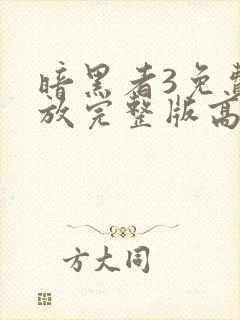 暗黑者3免费
放完整版高
方大同